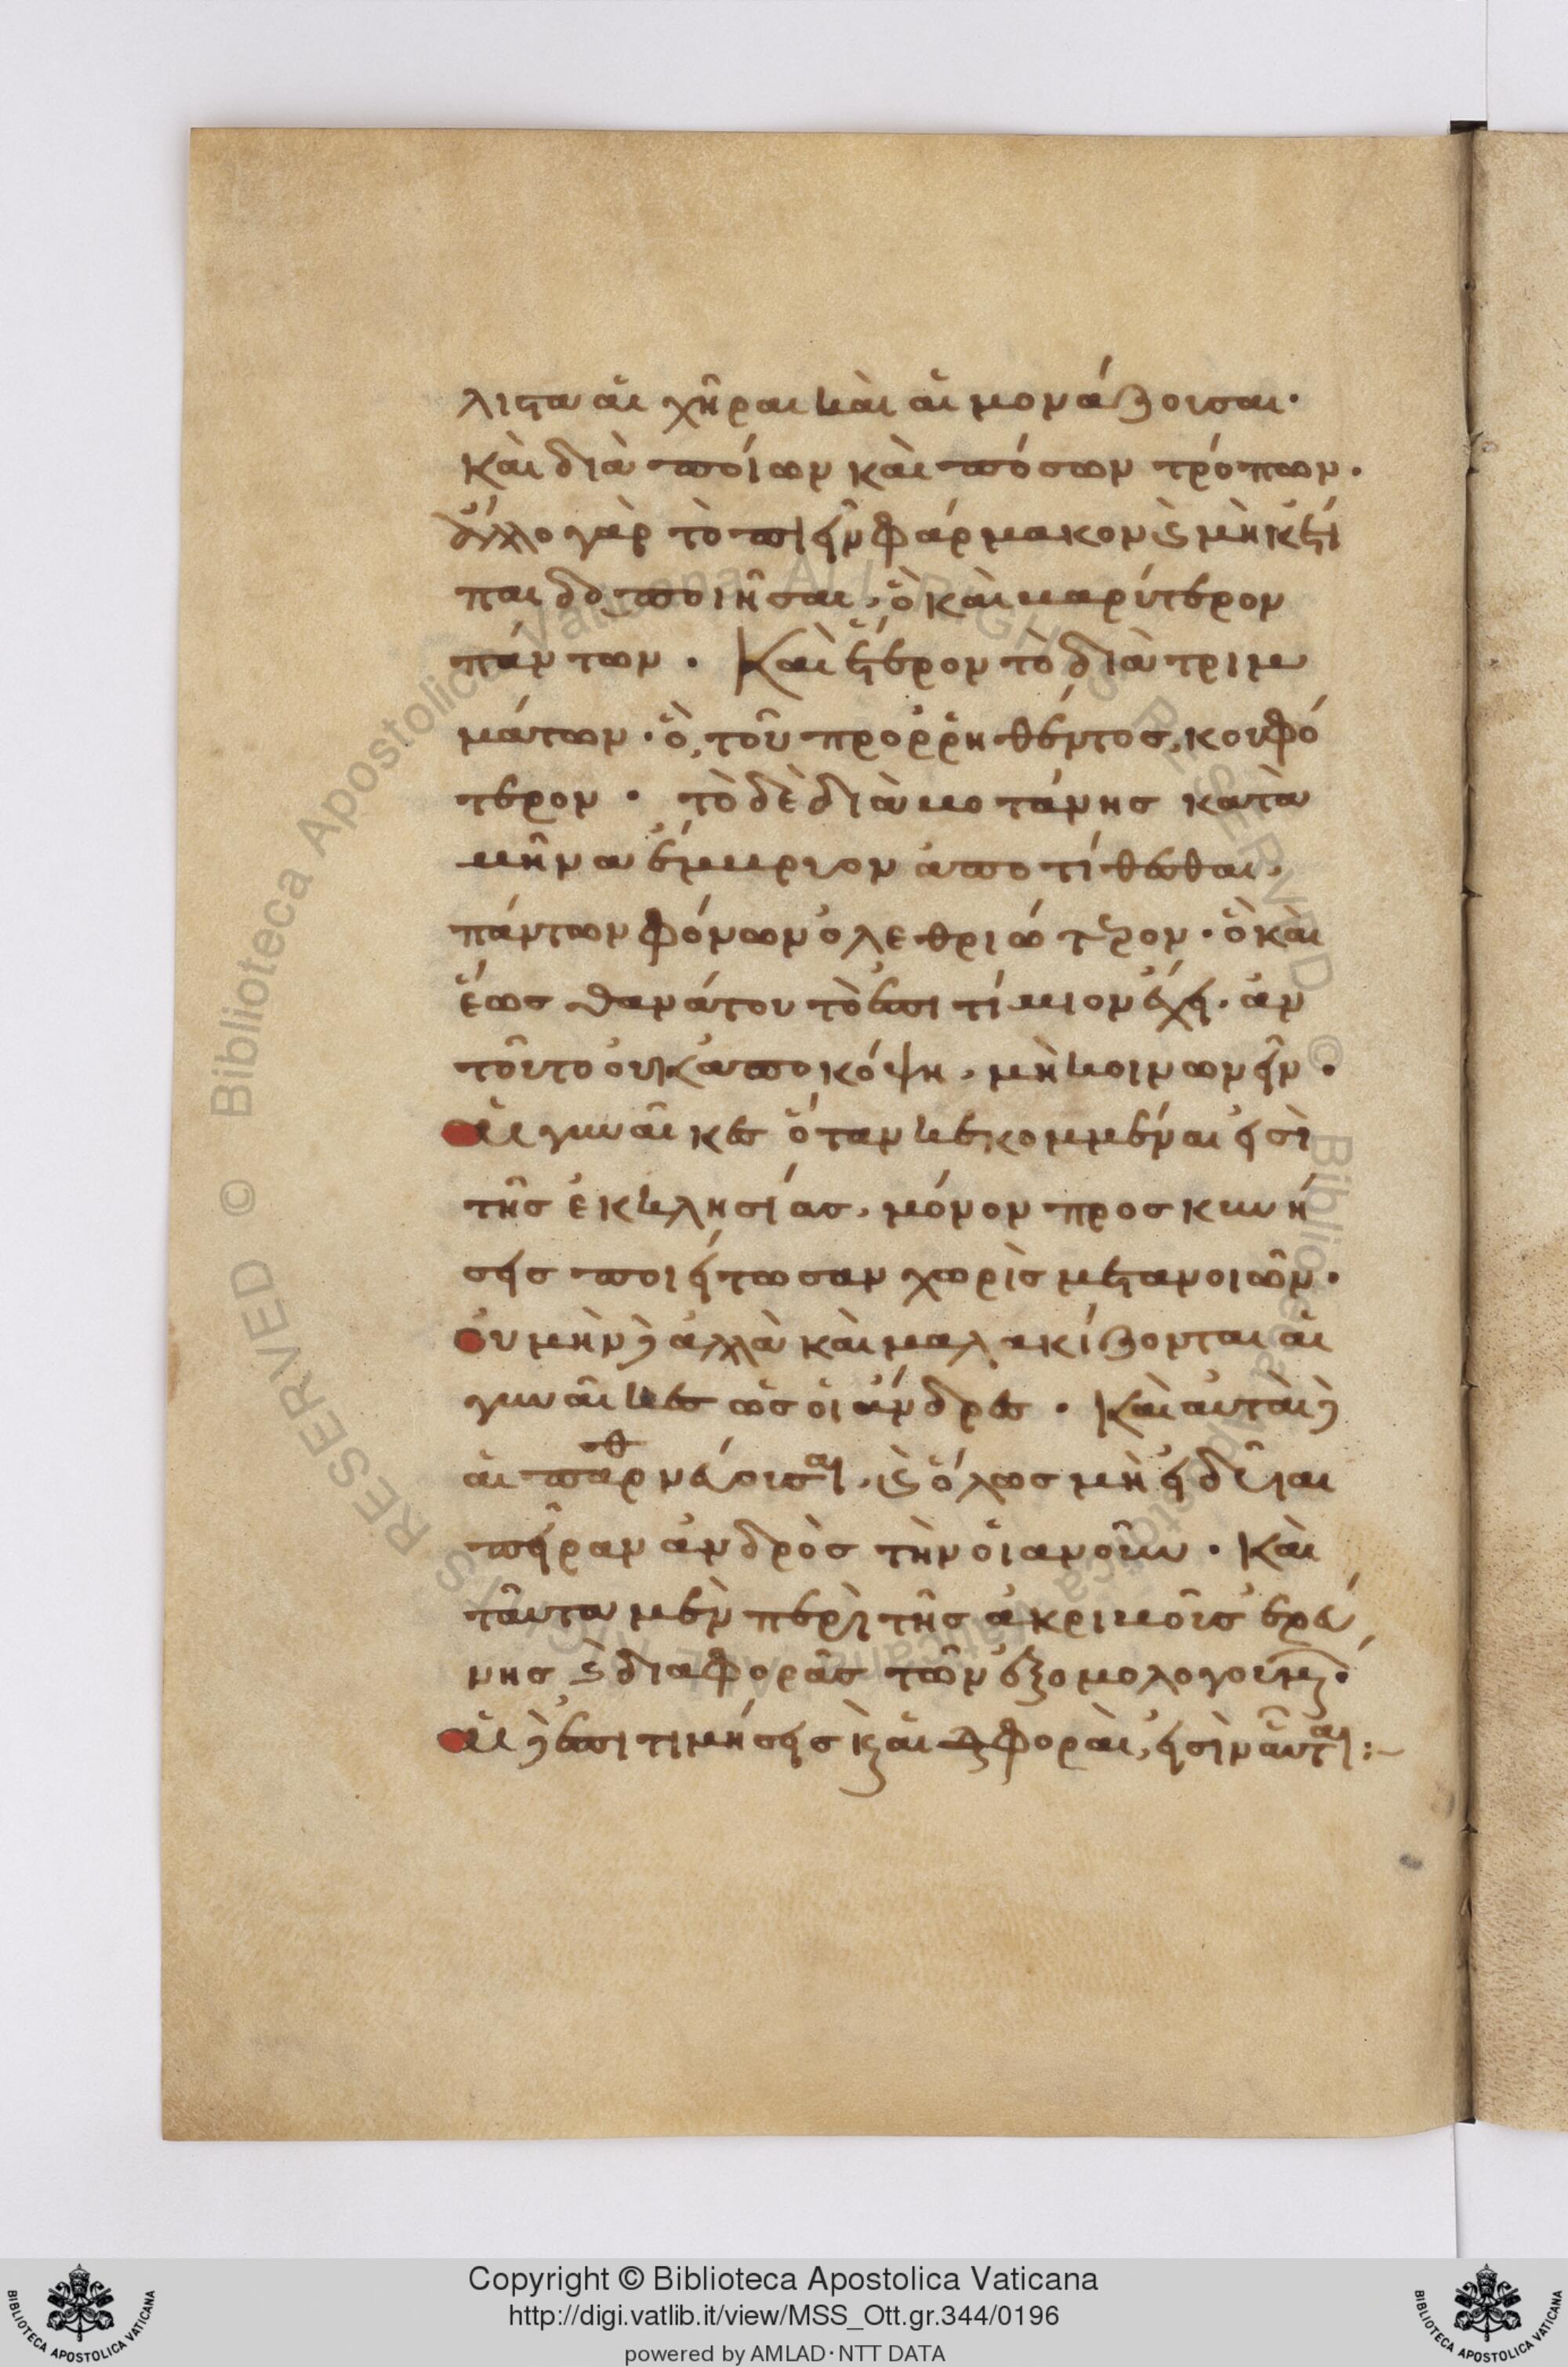 λιστα αἱ χῆραι καὶ αἱ μονάζουσαι·
καὶ διὰ ποίων καὶ πόσων τρόπων.
ἄλλο γὰρ τὸ πιεῖν φάρμακον καὶ μηκέτι
παιδοποιῆσαι, ὃ καὶ βαρύτερον
πάντων. Καὶ ἕτερον τὸ διὰ τριμ
μάτων· ὃ, τοῦ προρρηθέντος, κουφό
τερον. τὸ δὲ διὰ βοτάνης κατὰ
μῆνα ἔμβριον ἀποτίθεσθαι,
πάντων φόνων ὀλεθριώτερον· ὃ καὶ
ἕως θανάτου τὸ ἐπιτίμιον ἔχει. ἂν
τοῦτο οὐκ ἀποκόψη, μὴ κοινωνεῖν.
αἱ γυναῖκες ὅταν κεκομμέναι εἰσὶ
τῆς ἐκκλησίας, μόνον προσκυνή
σεις ποιείτωσαν χωρὶς μετανοιῶν.
Οὐ μὴν δὲ ἀλλὰ καὶ μαλακίζονται αἱ
γυναῖκες ὡς οἱ ἄνδρες. Καὶ αὐταὶ δὲ
αἱ παρθενεύουσαι, καὶ ὅλως μὴ εἰδυῖαι
πεῖραν ἀνδρὸς τὴν οἱανοῦν. Καὶ
ταῦτα μὲν περὶ τῆς ἀκριβοῦς ἐρεύ
νης καὶ διαφορᾶς τῶν ἐξομολογουμένων.
αἱ δὲ ἐπιτιμήσεις καὶ αἱ διαφοραὶ, εἰσὶν αὗται:~
Copyright © Biblioteca Apostolica Vaticana
http://digi.vatlib.it/view/MSS_Ott.gr.344/0196
powered by AMLAD·NTT DATA